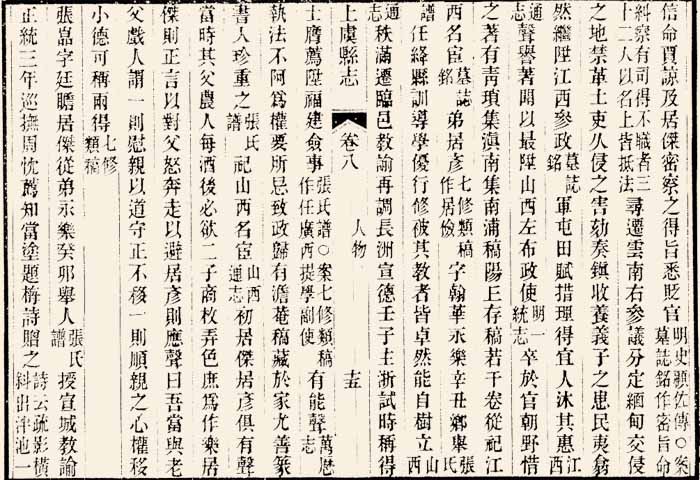 信命賈諒及居傑密察之得旨悉貶官明史顧佐傳○案墓誌銘作密旨命
糾察有司得不職者三十二人以名上皆抵法尋遷雲南右參議分定緬甸交侵
之地禁革土吏久侵之害劾奏鎮收養義子之患民夷翕
然繼陞江西參政墓誌銘軍屯田賦措理得宜人泳其惠江西
通志聲譽著聞以最陞山西左布政使明一統志卒於官朝野惜
之著有青瑣集滇南集南浦稿陽上存稿若干卷從祀江
西名宦墓誌銘弟居彥七修類稿作居檢字翰華永樂辛丑鄉舉張氏
譜任絳縣訓導學優行修被其教者皆卓然能自樹立山西
通志秩滿遷臨邑教諭再調長洲宣德壬子主浙試時稱得
上虞縣志 卷八 人物 十五
士膺薦陞福建僉事張氏譜○案七修類稿作任廣西提學副使有能聲萬歷志
執法不阿爲權要所忌致政歸有澹菴稿藏於家尤善篆
書人珍重之張氏譜祀山西名宦山西通志初居傑居彥俱有聲
當時其父農人每酒後必欲二子商枚弄色庶爲作樂居
傑則正言以對父怒奔走以避居彥則應聲曰吾當與老
父戲人謂一則慰親以道守正不移一則順親之心權移
小德可稱兩得七修類稿
張嵓字廷瞻居傑從弟永樂癸卯舉人張氏譜授宣城教諭
正統三年巡撫周忱薦知當塗題梅詩贈之詩云疏影橫斜出泮池一